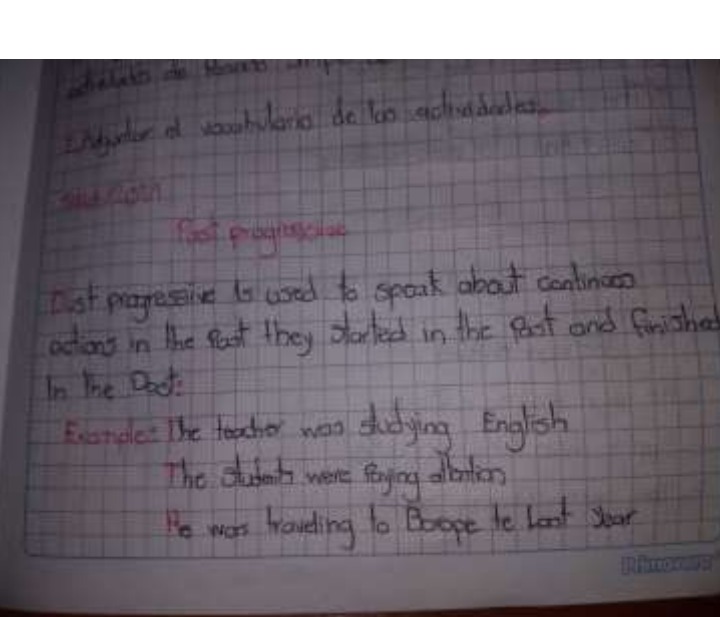 de
vocabulario de las actividades.
Past progressive
Past progressive is used to speak about continuos
actions in the past they started in the past and finished
In the Past:
Example: The teacher was studying English
The students were Paying attention
He was traveling to Europe te Last year